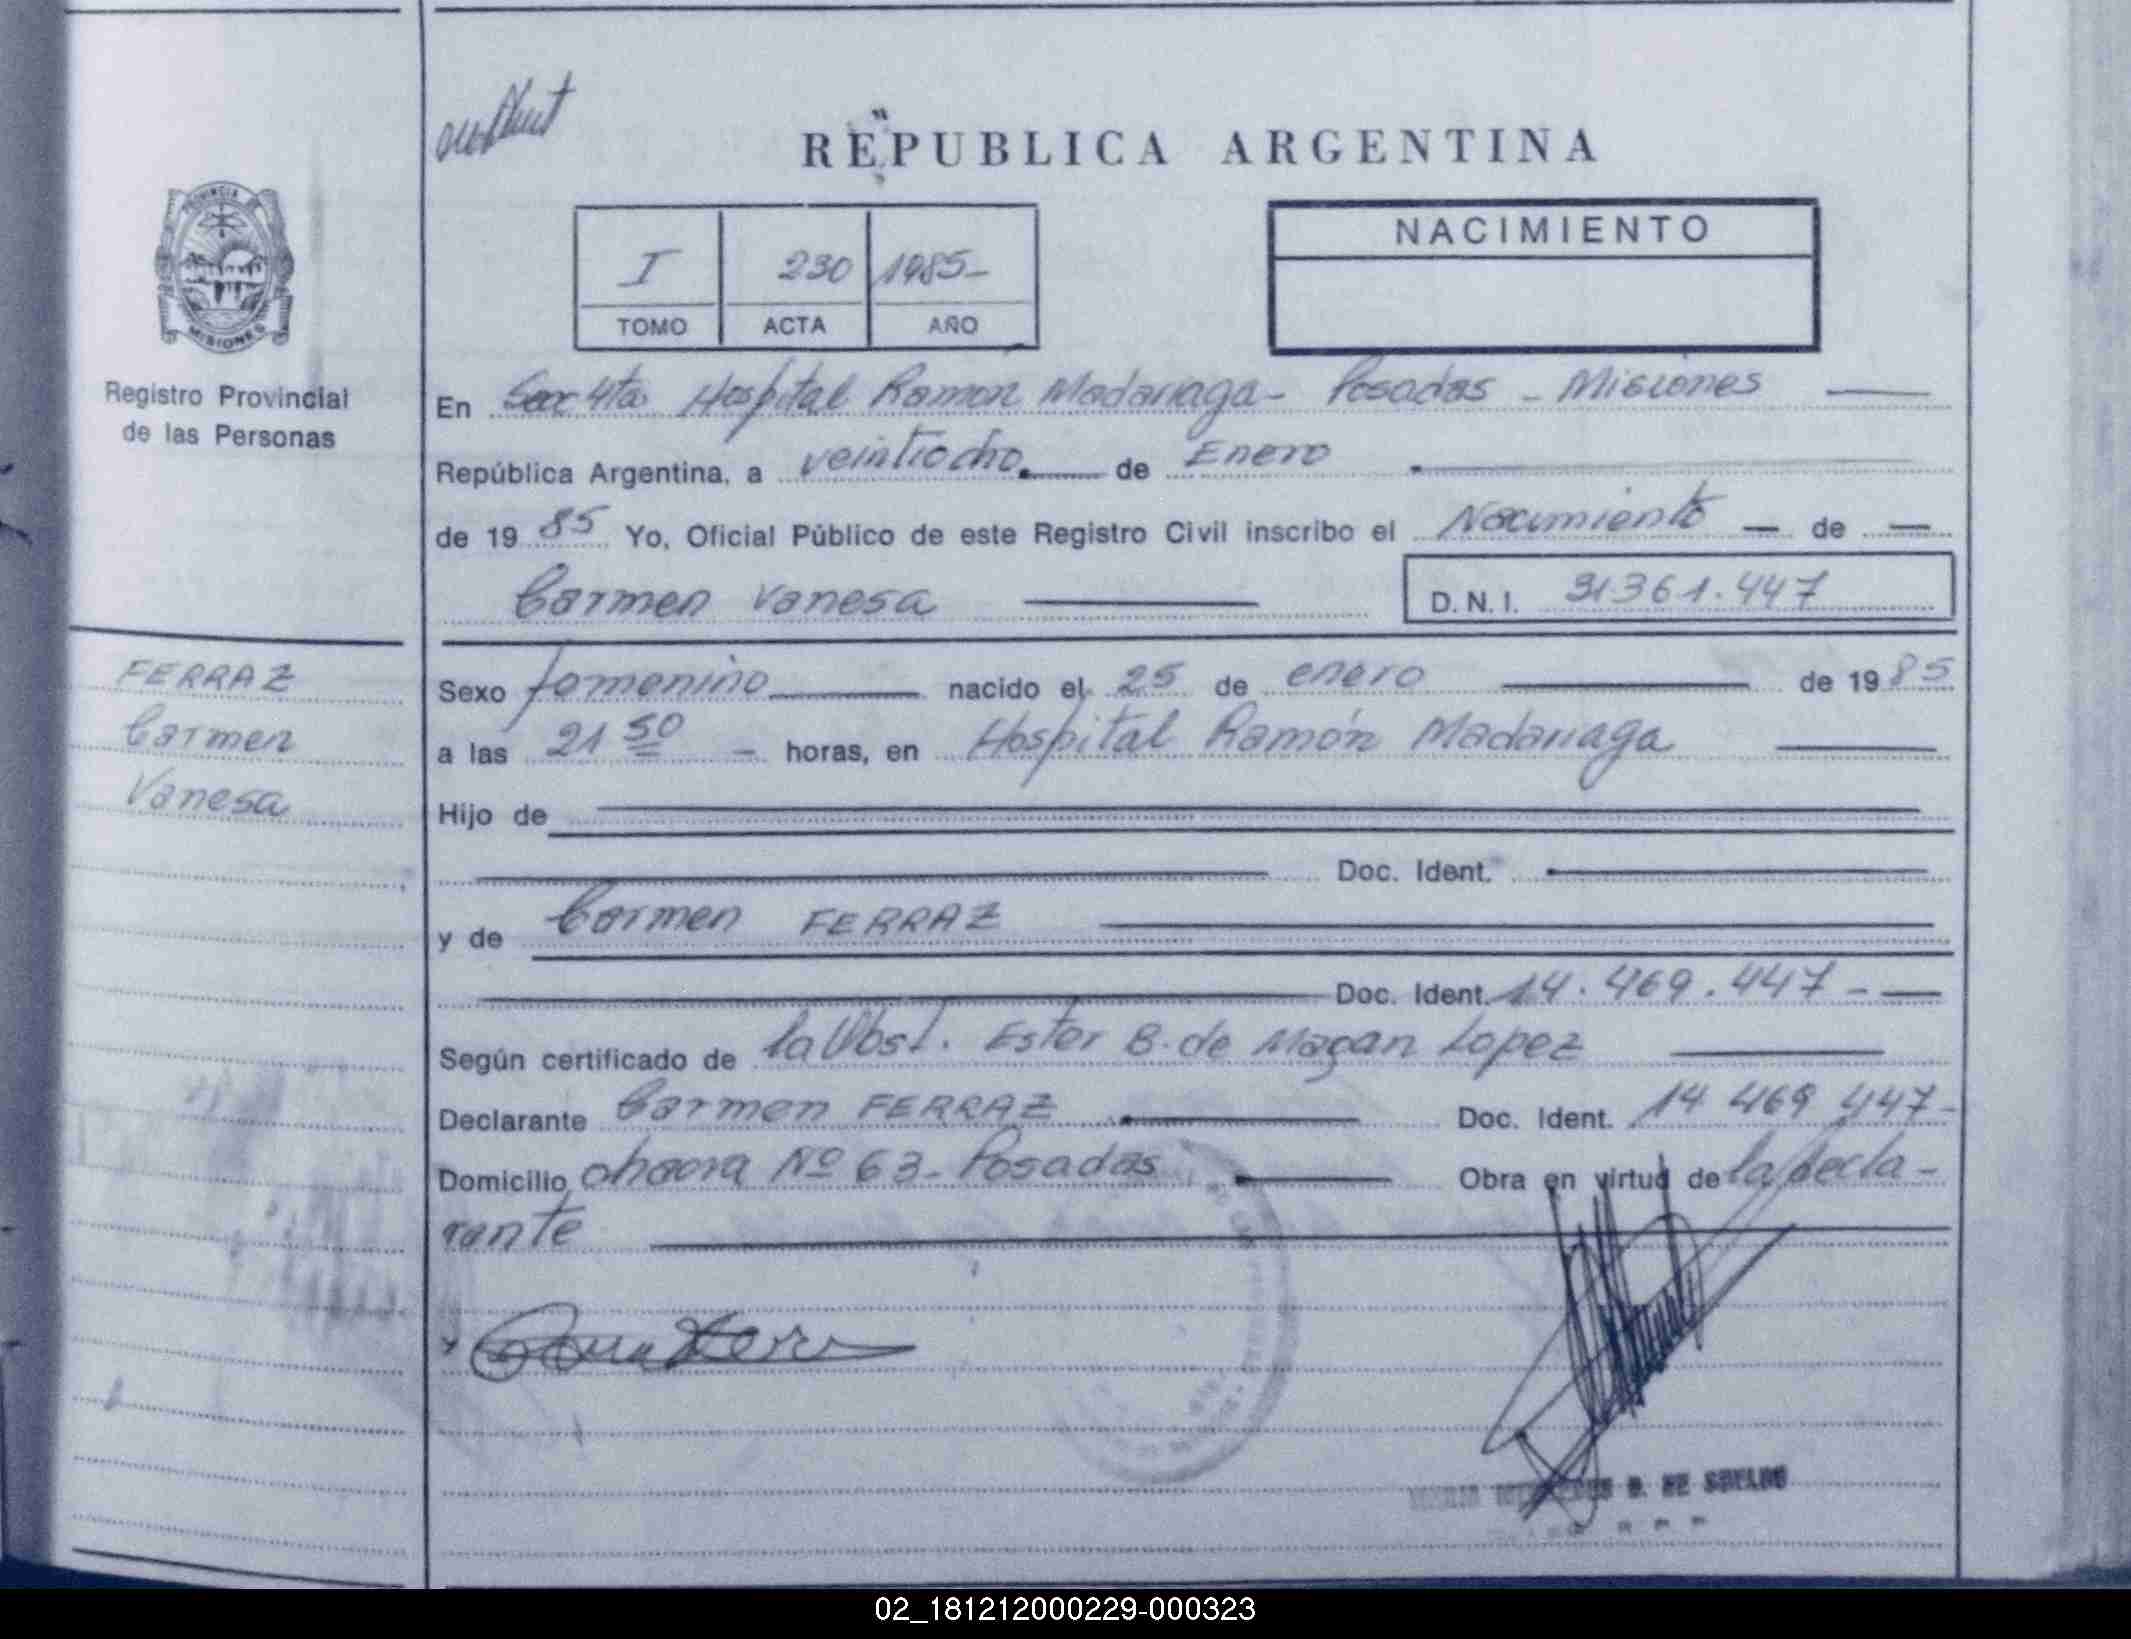 REPUBLICA ARGENTINA
PROVINCIA DE
MISIONES
Registro Provincial
de las Personas
I 230 1985-
TOMO ACTA AÑO
NACIMIENTO
En Secc 4ta Hospital Ramón Madariaga - Posadas - Misiones
República Argentina, a veintiocho de Enero
de 1985 Yo, Oficial Público de este Registro Civil inscribo el Nacimiento de
Carmen Vanesa D.N.I. 31361.447
FERRAZ
Carmen
Vanesa
Sexo femenino nacido el 25 de enero de 1985
a las 21 50 - horas, en Hospital Ramón Madariaga
Hijo de
Doc. Ident.
y de Carmen FERRAZ
Doc. Ident. 14.469.447 -
Según certificado de la Obst. Ester B. de Magan Lopez
Declarante Carmen FERRAZ Doc. Ident. 14 469 447-
Domicilio chacra Nº 63 - Posadas Obra en virtud de la decla-
rante
02_181212000229-000323